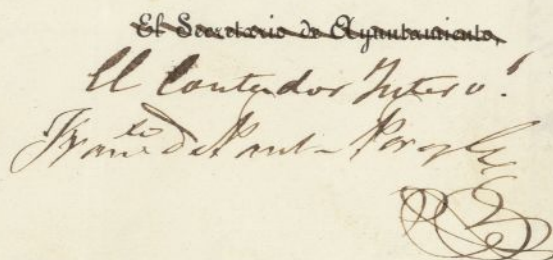 El Secretario de Ayuntamiento,
El Contador Inter.o
Fran.co de Paul